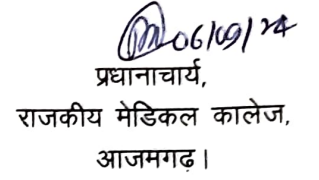 06/09/24
प्रधानाचार्य,
राजकीय मेडिकल कालेज,
आजमगढ़।